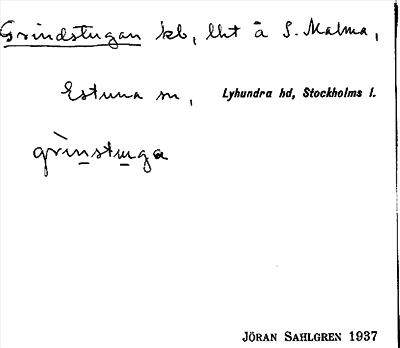 Grindstugan kb, lht å S. Malma,
Estuna sn, Lyhundra hd, Stockholms l.
grìnstuga
JÖRAN SAHLGREN 1937